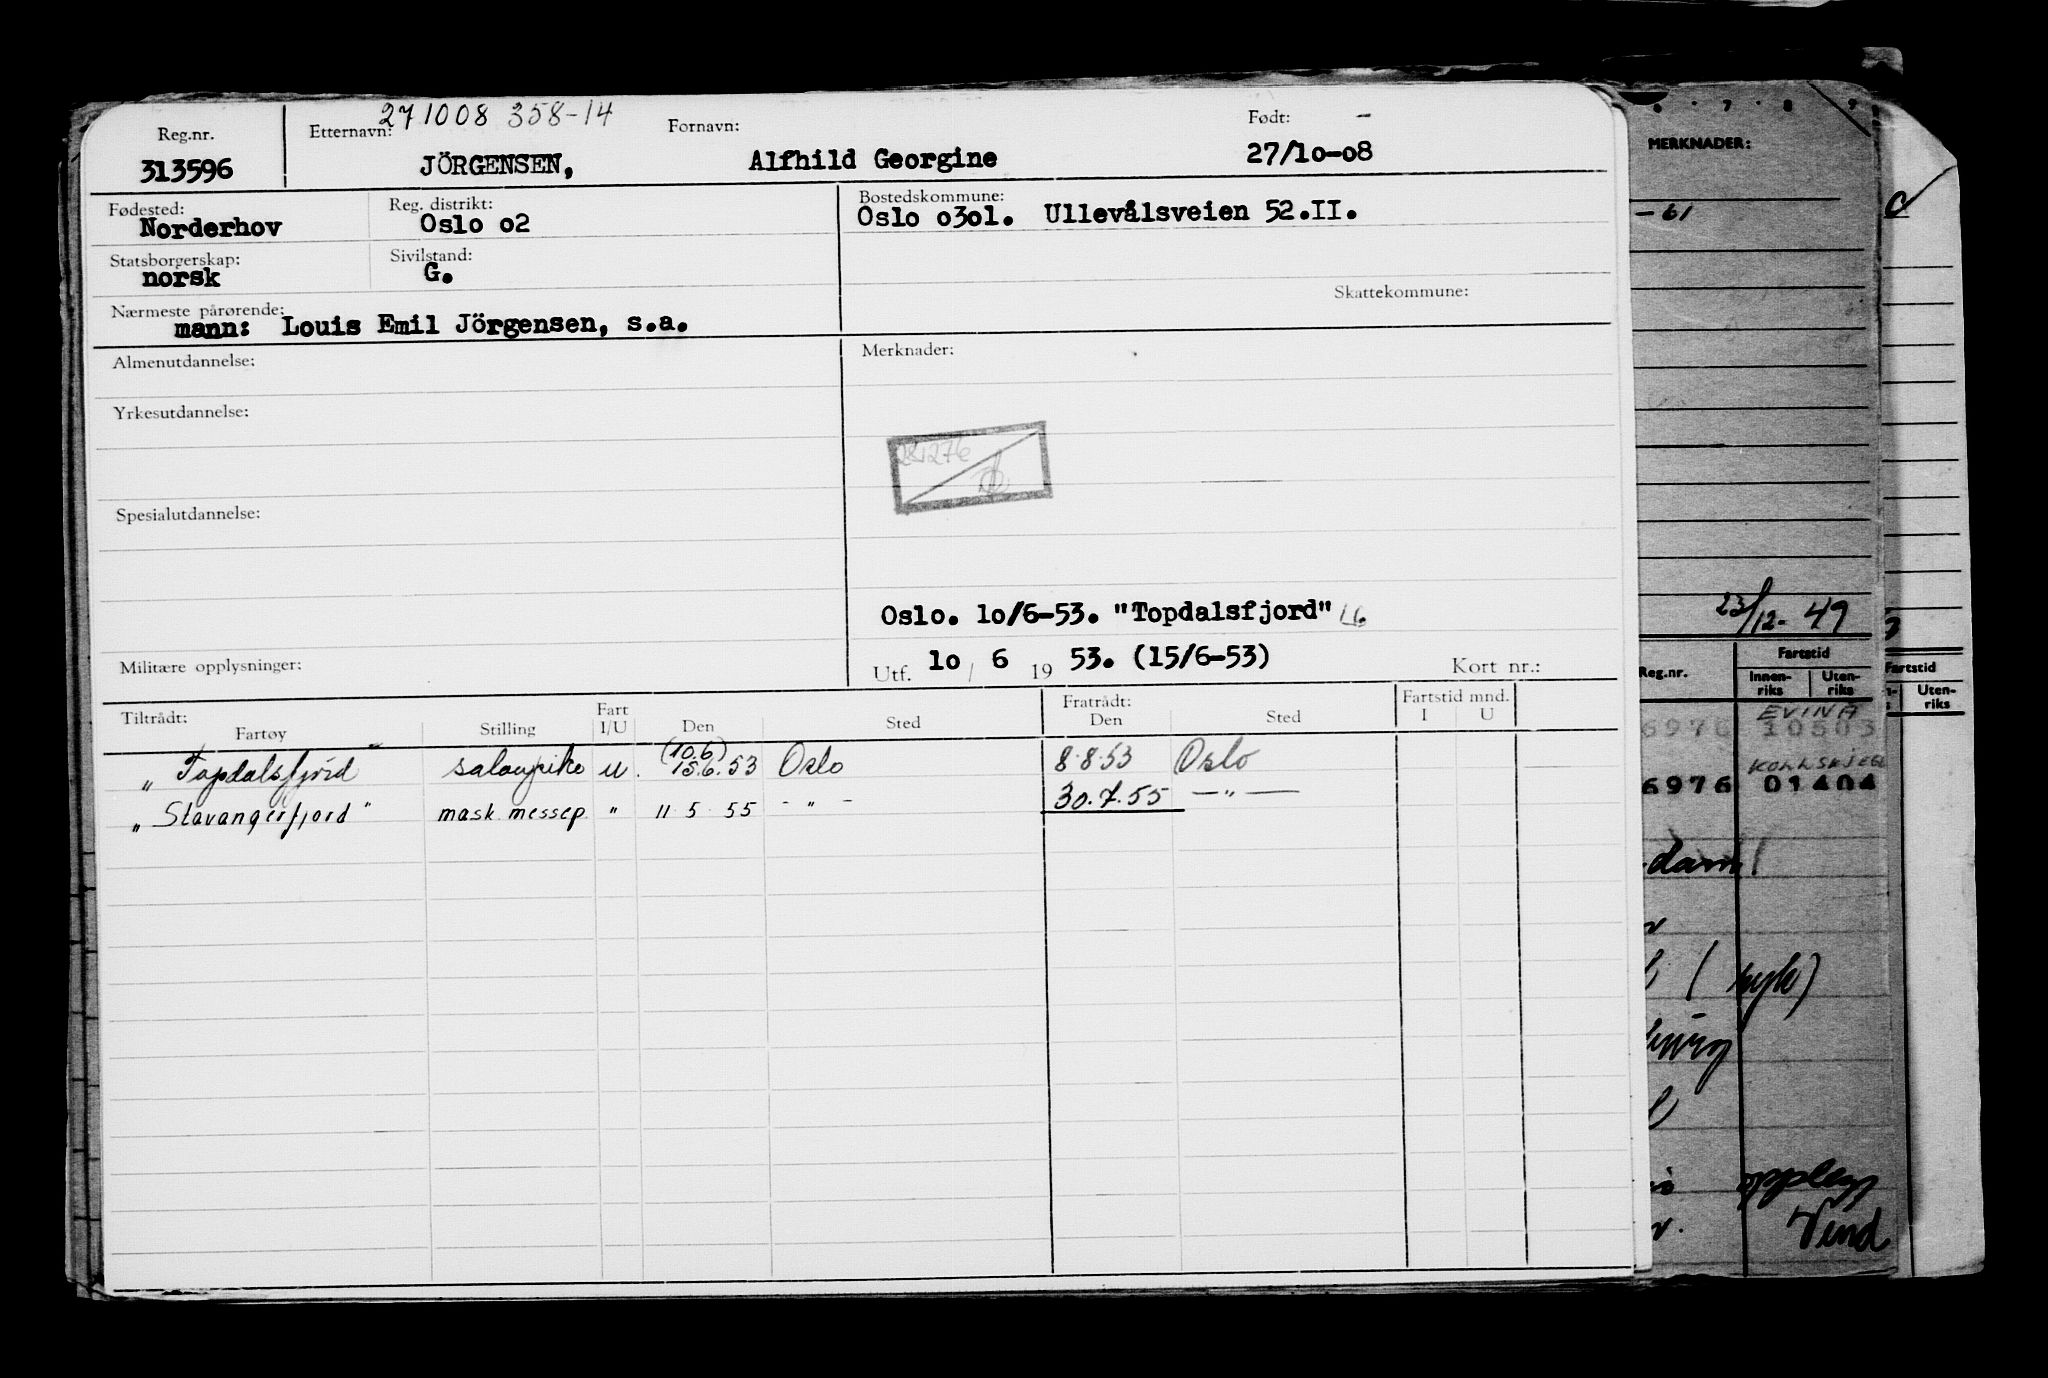 271008 358-14
Reg.nr. Etternavn: Fornavn: Født: -
313596 JÖRGENSEN, Alfhild Georgine 27/1o-o8
Fødested: Reg. distrikt: Bostedskommune:
Norderhov Oslo o2 Oslo o3o1. Ullevålsveien 52.II.
Statsborgerskap: Sivilstand:
norsk G.
Skattekommune:
Nærmeste pårørende:
mann: Louis Emil Jörgensen, s.a.
Almenutdannelse: Merknader:
Yrkesutdannelse:
281276
Spesialutdannelse:
Oslo. 1o/6-53. "Topdalsfjord"
Militære opplysninger: Utf. 1o / 6 19 53. (15/6-53) Kort nr.:
Tiltrådt: Fratrådt: Fartstid mnd.
Fartøy Stilling Fart I/U Den Sted Den Sted I U
(10.6)
"Topdalsfjord" salongpike U. 15.6.53 Oslo 8.8.53 Oslo
"Stavangerfjord" mask messep. " 11 5 55 - " - 30.7.55 - " -
6 7 8 9
MERKNADER:
-61
23/12-49
Reg.nr. Fartstid
Innen-riks Uten-riks
EVINA
6976 10503
6976 01404
dam
oppleg
Vend
Fartstid
Uten-riks